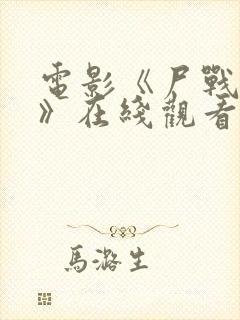 電影《尸戰
》在綫觀看
馬潞生